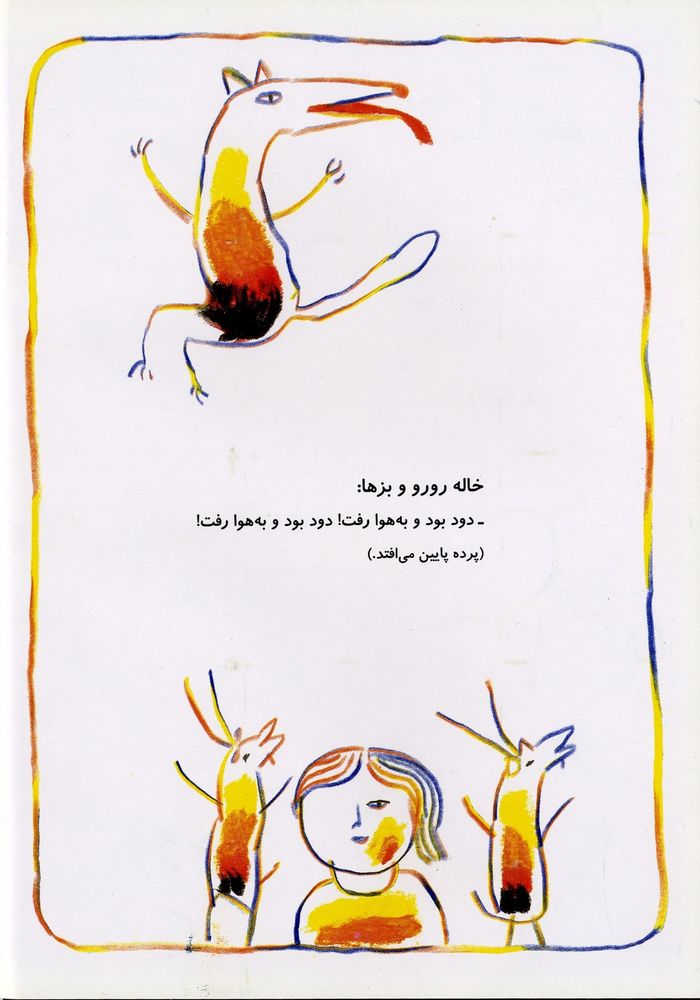 خاله رورو و بزها:
ـ دود بود و به‌هوا رفت! دود بود و به‌هوا رفت!
(پرده پایین می‌افتد.)